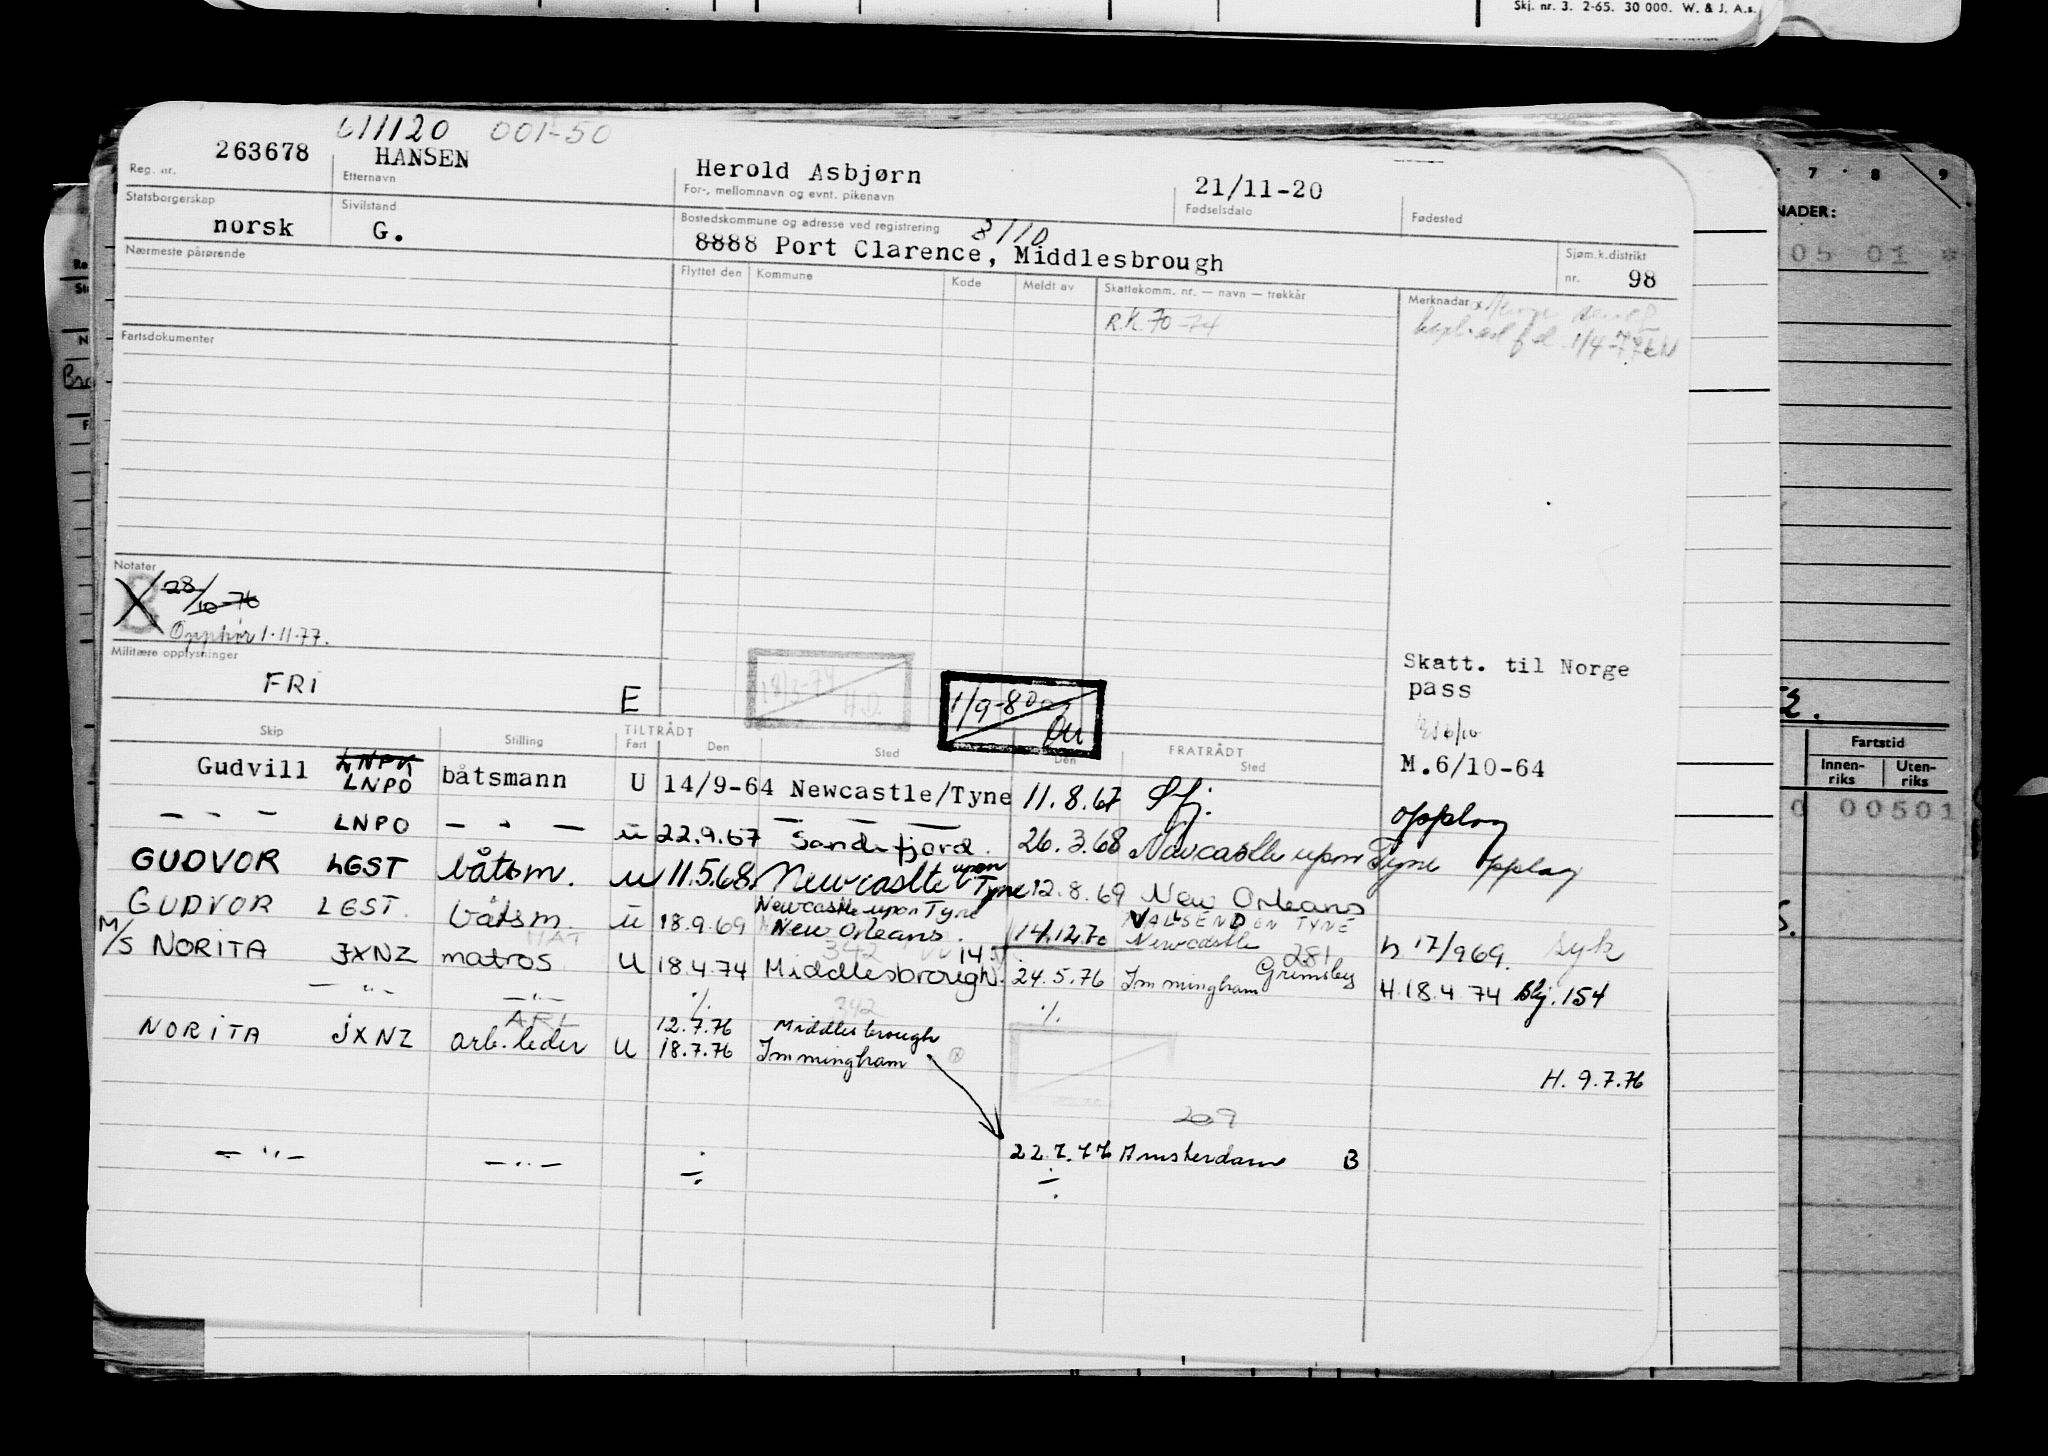 Skj. nr. 3. 2-65. 30 000. W. & J. A.s.
611120 001-50
Reg. nr. 263678 HANSEN Herold Asbjørn 21/11-20
Etternavn For-, mellomnavn og evnt. pikenavn Fødselsdato Fødested
Statsborgerskap Sivilstand Bostedskommune og adresse ved registrering 8110
norsk G. 8888 Port Clarence, Middlesbrough Sjøm.k.distrikt
nr. 98
Nærmeste pårørende Flyttet den Kommune Kode Meldt av Skattekomm. nr. — navn — trekkår Merknadar
R.K. 70-74 1/4-77
Fartsdokumenter
Notater
B 28/10-76
Opphør 1.11.77.
Militære opplysninger
FRI E
18/3-74 H.D.
1/9-80
Skatt. til Norge
pass
Skip Stilling TILTRÅDT Fart Den Sted FRATRÅDT Den Sted
M.6/10-64
Gudvill LNPK LNPO båtsmann U 14/9-64 Newcastle/Tyne 11.8.67 Sfj. opplag
— " — LNPO — " — u 22.9.67 Sandefjord. 26.3.68 Newcastle upon Tyne opplag
GUDVOR LGST båtsm. u 11.5.68 Newcastle upon Tyne 12.8.69 New Orleans
GUDVOR LGST. båtsm. u 18.9.69 Newcastle upon Tyne New Orleans. 14.12.70 WALLSEND ON TYNE Newcastle h 17/969. syk
MAT 342 281
M/S NORITA JXNZ matros U 18.4.74 Middlesbrough. 14.5 24.5.76 Immingham Grimsby H.18.4.74 Bkj. 154
— " — — " — ./. ./.
ARL 342
NORITA JXNZ arb.leder U 12.7.76 Middlesbrough
18.7.76 Immingham
H. 9.7.76
209
— " — — " — ÷ 22.7.77 Amsterdam B
÷
7 8 9
NADER:
005 01 *
Fartstid
Innen-
riks
Uten-
riks
0 00501